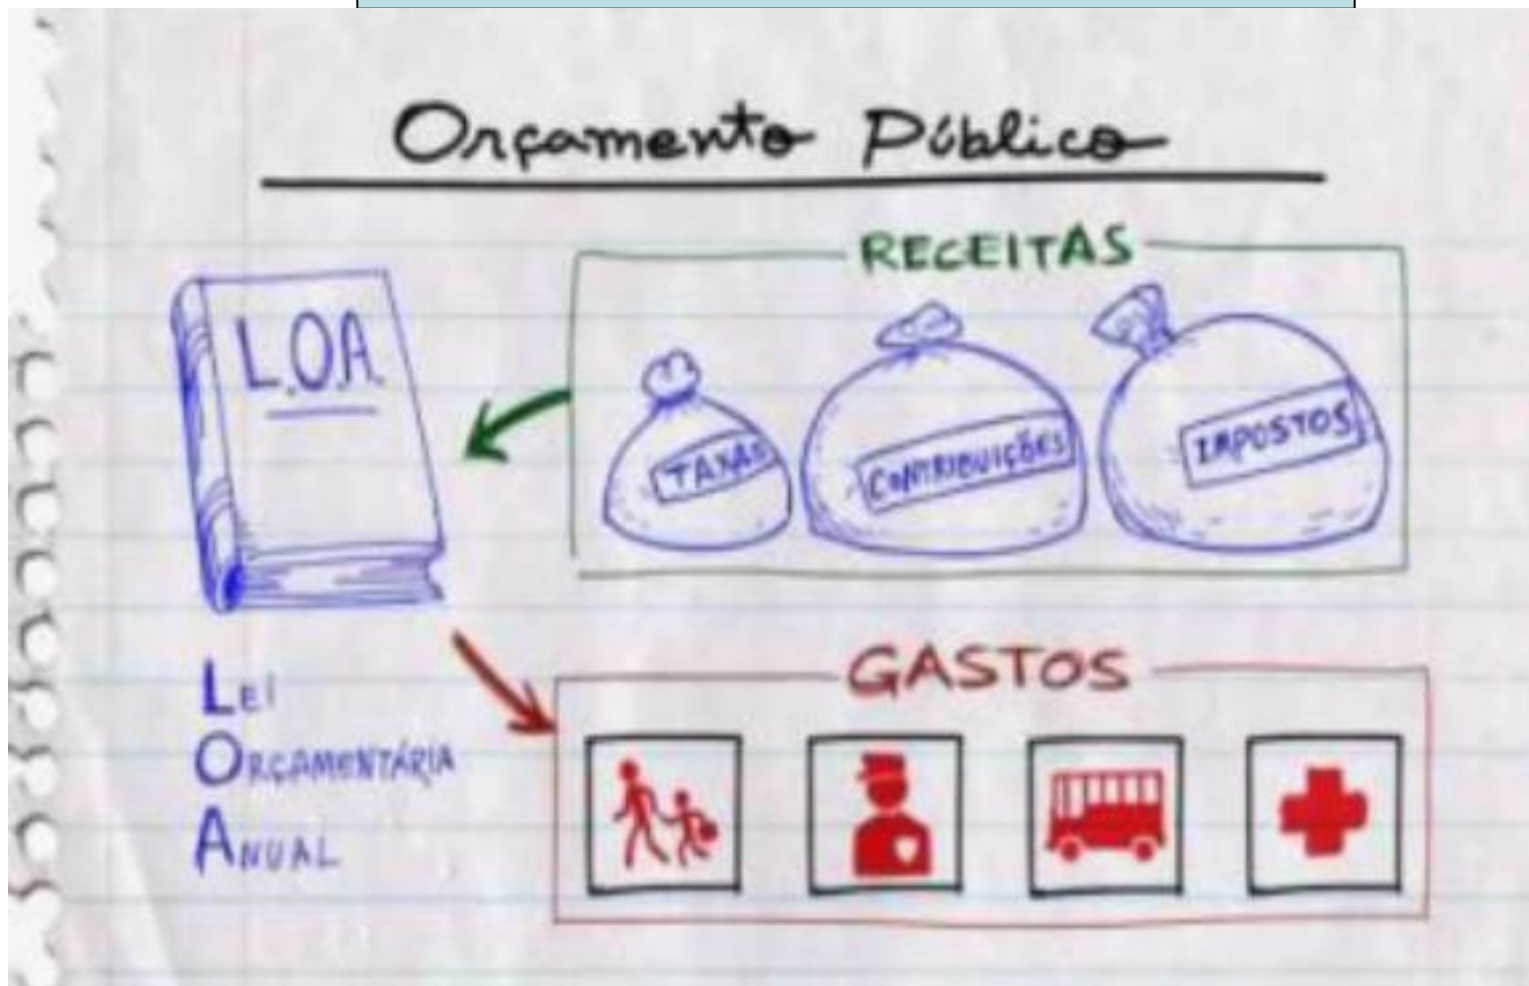 Orçamento Público
RECEITAS
L.O.A.
TAXAS
CONTRIBUIÇÕES
IMPOSTOS
LEI
ORÇAMENTÁRIA
ANUAL
GASTOS